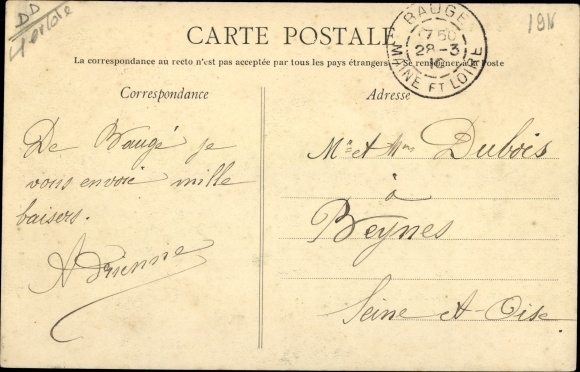 DD
CARTE POSTALE
La correspondance au recto n'est pas acceptée par tous les pays étrangers. — Se renseigner à la Poste
BAUGÉ
17 50
28 -3
MAINE ET LOIRE
Correspondance
Adresse
De Baugé je
vous envoie mille
baisers.
Adrienne
Mr et Mme Dubois
à
Beynes
Seine et Oise